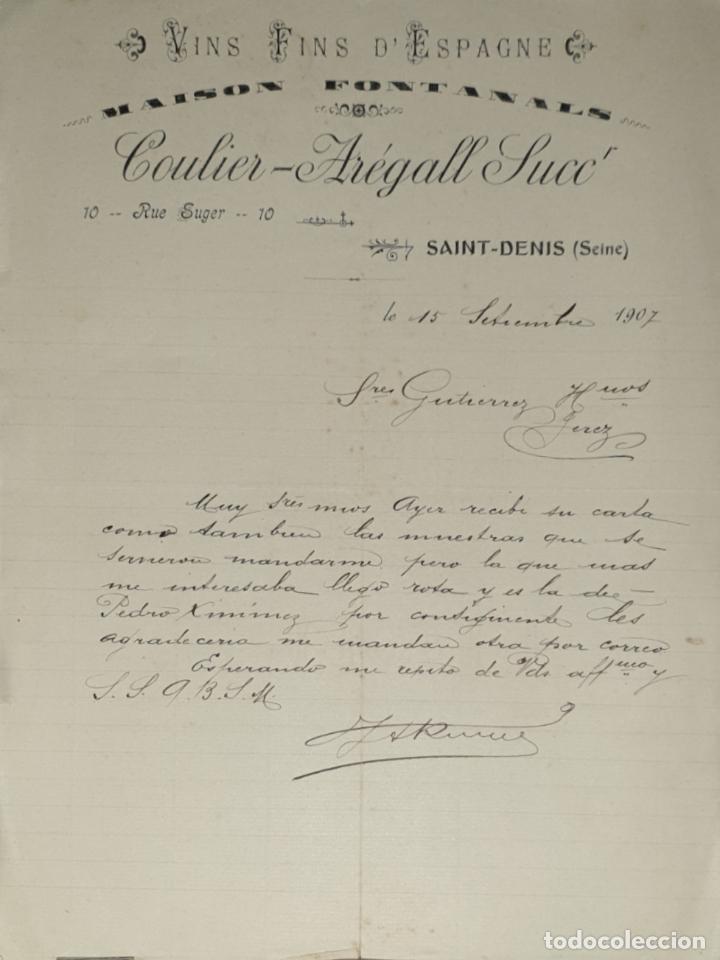 VINS FINS D'ESPAGNE
MAISON FONTANALS
Coulier-Arégall Succr
10 -- Rue Suger -- 10
SAINT-DENIS (Seine)
le 15 Setiembre 1907
Sres Gutierrez Hnos
Jerez
Muy Sres mios Ayer recibi su carta
como tambien las muestras que se
sirvieron mandarme, pero la que mas
me interesaba llego rota y es la de
Pedro Ximinez por consiguiente les
agradeceria me mandan otra por correo
Esperando me repito de Vds affmo y
S. S. Q. B. S. M.
todocoleccion